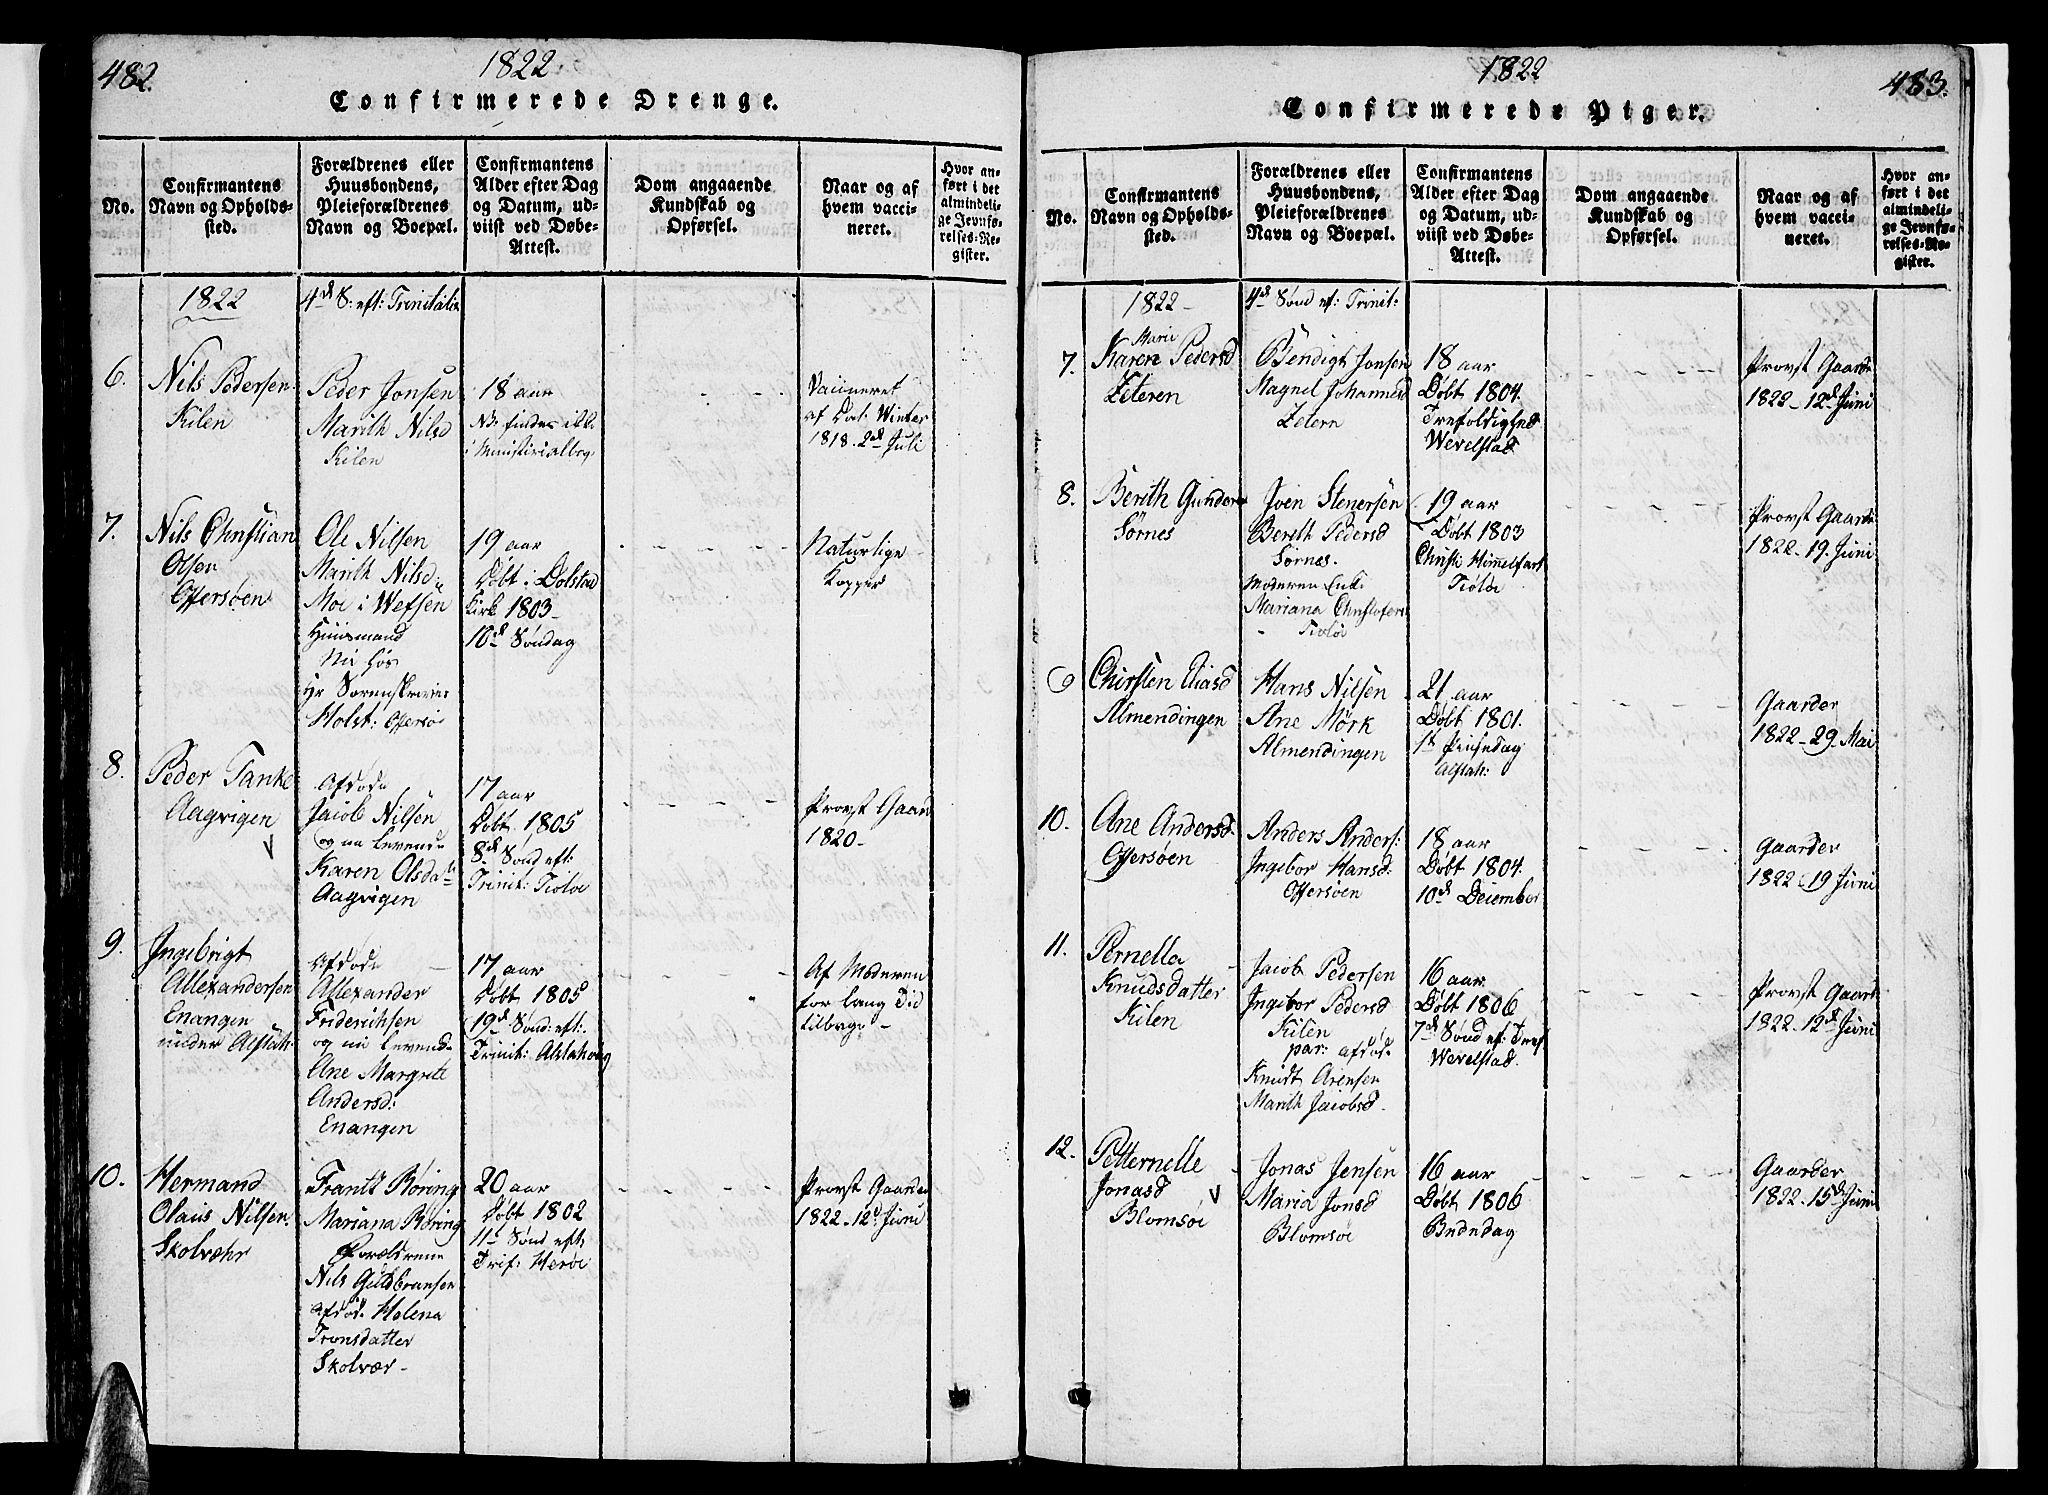 482.
1822
Confirmerede Drenge.
No.
Confirmantens
Navn og Opholds-
sted.
Forældrenes eller
Huusbondens,
Pleieforældrenes
Navn og Boepæl.
Confirmantens
Alder efter Dag
og Datum, ud-
viist ved Døbe-
Attest.
Dom angaaende
Kundskab og
Opførsel.
Naar og af
hvem vacci-
neret.
Hvor an-
ført i det
almindeli-
ge Jevnfø-
relses-Re-
gister.
1822
4de S: eft: Trinitatis
6.
Nils Pedersen
Kilen
Peder Jonsen
Marith Nilsd
Kilen
18 aar
NB findes ikke
i Ministerialbog
Vaccineret
af Dat. Winter
1818. 2de Juli
7.
Nils Christian
Olsen
Offersøen
Ole Nilsen
Marith Nilsd:
Moe i Wefsen
Huusmand
Nu hos
Hr Sorenskriver
Holst: Offersø
19 aar
Døbt i Dolstad
Kirk 1803
10de Søndag
Naturlige
Kopper
8.
Peder Tanke
Aagvigen
Afdøde
Jacob Nilsen
og nu levende
Karen Olsdatr
Aagvigen
17 aar
Døbt 1805
8de Sønd eft:
Trinit: Tiøtøe
Provst Gaard
1820
9.
Ingebrigt
Allexandersen
Enangen
under Alstah:
Afdøde
Allexander
Friderichsen
og nu levende
Ane Margrete
Andersd:
Enangen
17 aar
Døbt 1805
19de Sønd: eft:
Trinit: Alstahoug
Af Moderen
for lang Tid
tilbage
10.
Hermand
Olaus Nilsen
Skolvæhr
Frantz Røring
Mariana Røring
Forældrene
Nils Guldbransen
afdøde Helena
Tronsdatter
Skolvær
20 aar
Døbt 1802
11te Sønd eft
Tref: Herøe
Provst Gaarder
1822. 12te Juni
1822
483.
Confirmerede Piger.
No.
Confirmantens
Navn og Opholds-
sted.
Forældrenes eller
Huusbondens,
Pleieforældrenes
Navn og Boepæl.
Confirmantens
Alder efter Dag
og Datum, ud-
viist ved Døbe-
Attest.
Dom angaaende
Kundskab og
Opførsel.
Naar og af
hvem vacci-
neret.
Hvor an-
ført i det
almindeli-
ge Jevnfø-
relses-Re-
gister.
1822
4de Sønd ef: Trinit:
7.
Marie
Karen Pedersd
Zeteren
Bendigt Jonsen
Magnel Johannesd
Zetern
18 aar
Døbt 1804
Trefoldighed
Wevelstad
Provst Gaarde
1822 12te Juni
8.
Berith Gunders
Sørnes
Iven Stenersen
Bereth Pedersd
Sørnes.
Moderen Enke
Mariana Christofers
Tiøtøe
19 aar
Døbt 1803
Christi Himmelfart
Tiøtøe
Provst Gaarde
1822 19. Juni
9
Chirsten Eliasd
Almendingen
Hans Nilsen
Ane Mørk
Almendingen
21 aar
Døbt 1801.
1te Pinsedag
Alstah:
Gaarder
1822 29. Mai
10.
Ane Andersd
Offersøen
Anders Anders:
Ingebor Hansd:
Offersøen
18 aar
Døbt 1804.
10de December
Gaarder
1822 19 Juni
11.
Pernella
Knudsdatter
Kilen
Jacob Pedersen
Ingebor Pedersd
Kilen
par: afdøde
Knudt Arensen
Marith Jacobsd
16 aar
Døbt 1806
7de Sønd ef: Tref
Wevelstad
Provst Gaarde
1822 12te Juni
12.
Petternelle
Jonasd
Blomsøe
Jonas Jensen
Maria Jonsd
Blomsøe
16 aar
Døbt 1806
Bededag
Gaarder
1822 15de Juni